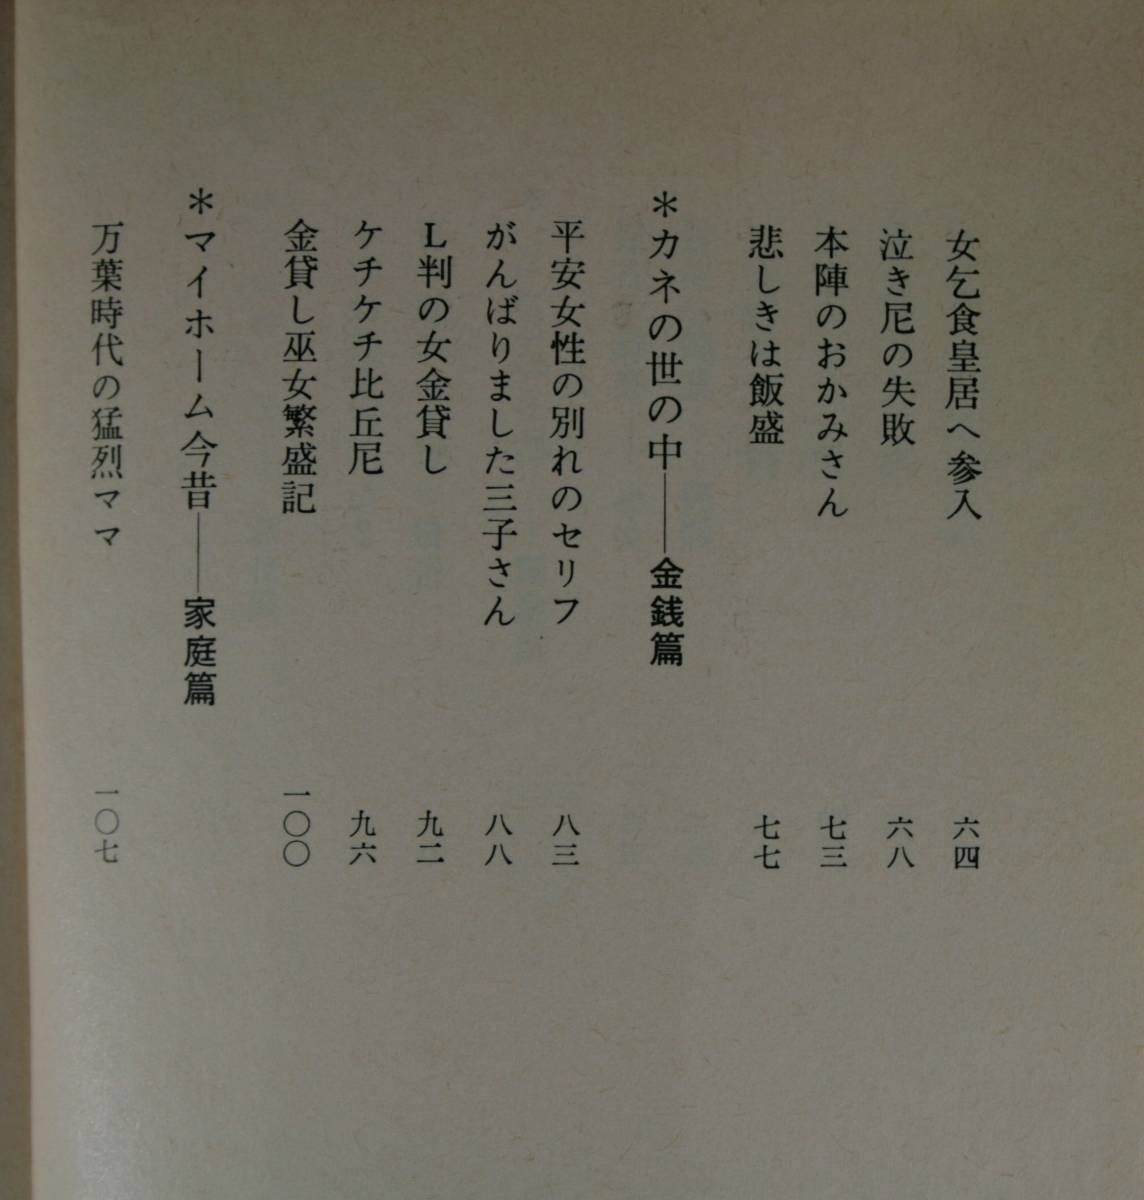 女乞食皇居へ参入 六四
泣き尼の失敗 六八
本陣のおかみさん 七三
悲しきは飯盛 七七
＊カネの世の中――金銭篇
平安女性の別れのセリフ 八三
がんばりました三子さん 八八
L判の女金貸し 九二
ケチケチ比丘尼 九六
金貸し巫女繁盛記 一〇〇
＊マイホーム今昔――家庭篇
万葉時代の猛烈ママ 一〇七